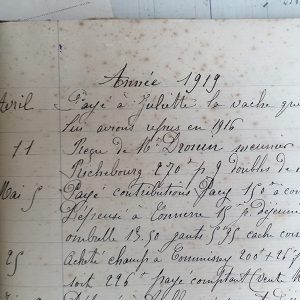 Année 1919
Avril Payé à Juliette la vache que
lui avions repris en 1916
11 Reçu de Mr meunier
Richebourg 270f p 9 doubles de
Mai 5 Payé contributions Pacy 150f à
Dépense à 15f déjeuner
ombrelle 13.50 gants 5.95 cache
25 Acheté champ à Commissey 200f + 26f
soit 226f payé comptant (vente